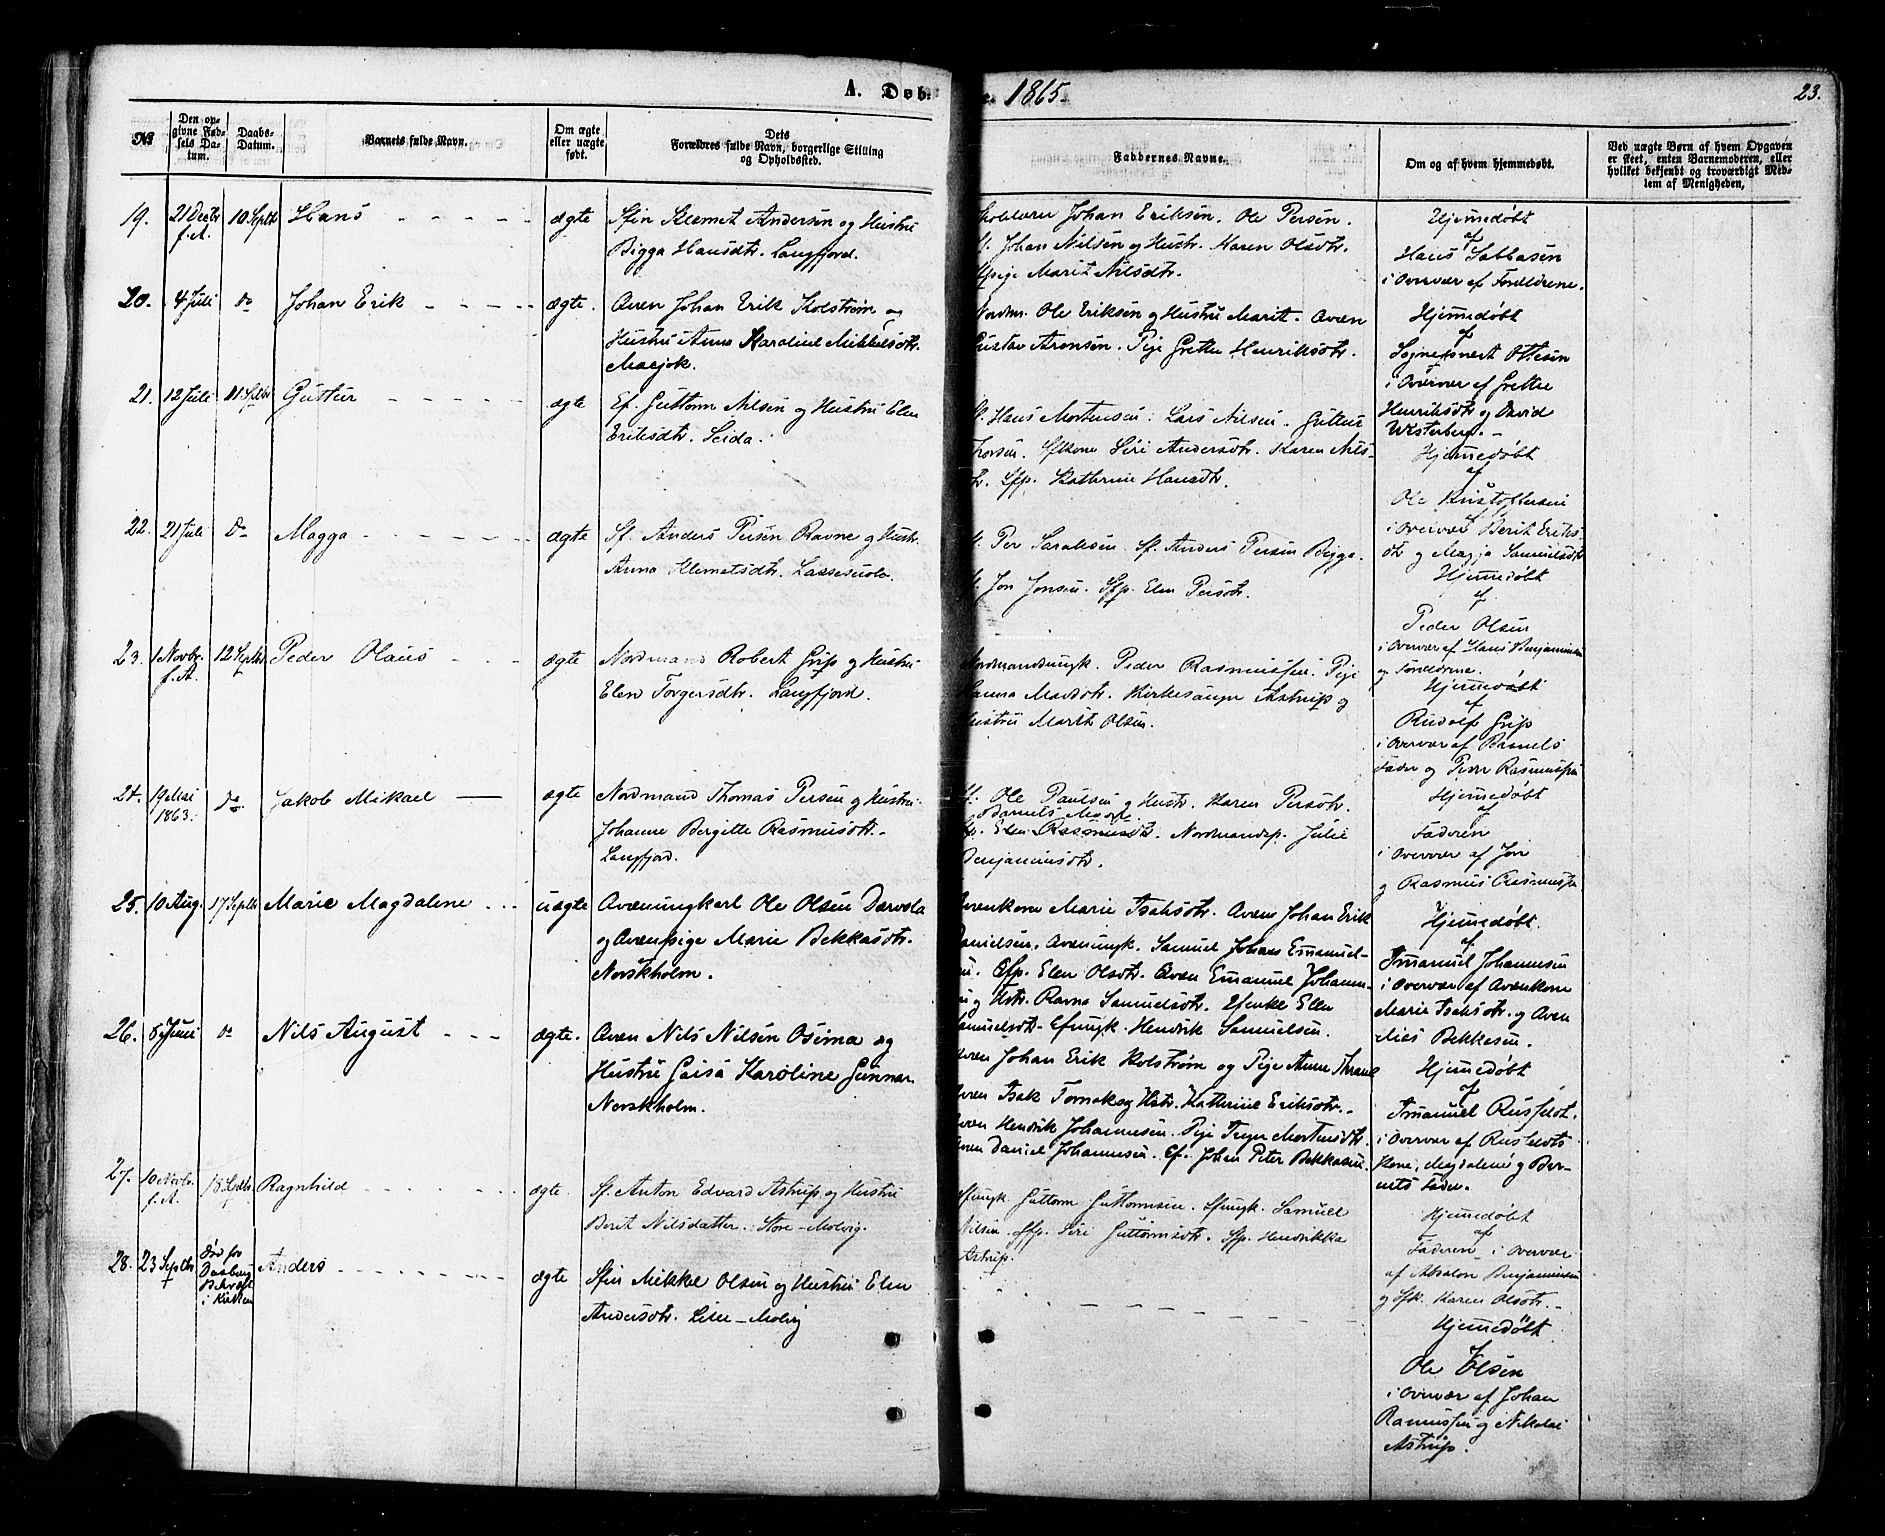 A. Døb
e. 1865.
23.
No
Den op-
givne Fød-
sels Da-
tum.
Daabs-
Datum.
Barnets fulde Navn.
Om ægte
eller uægte
født.
Dets
Forældres fulde Navn, borgerlige Stilling
og Opholdssted.
Faddernes Navne.
Om og af hvem hjemmedøbt.
Ved uægte Børn af hvem Opgaven
er skeet, enten Barnemoderen, eller
hvilket bekjendt og troværdigt Med-
lem af Menigheden.
19.
21 Decbr
f.A.
10 Septbr
Hans
ægte
Sfin Klemet Andersen og Hustru
Bigga Hansdtr. Langfjord.
Johan Eriksen. Ole Persen.
Johan Nilsen og Hustr. Karen Olsdtr.
Marit Nilsdtr.
Hjemedøbt
af
Hans Sabbasen
i Overvær af Forældrene.
20.
4 Juli
do
Johan Erik
ægte.
Qven Johan Erik Kolstrøm og
Hustru Anna Karoline Mikkelsdtr.
Masjok.
Nordm. Ole Eriksen og Hustru Marit. Qven
Gustav Aronsen. Pige Grethe Henriksdtr.
Hjemedøbt
af
Sognepræst Ottesen
i Overvær af Grethe
Henriksdtr og David
Westerberg.
21.
12 Juli
11 Septbr
Guttur
ægte
Ef. Guttorm Nilsen og Hustru Elen
Eriksdtr. Seida.
Hans Mortensen. Lars Nilsen. Guttur
Thorsen. Sfkone Siri Andersdtr. Karen Nils-
dtr. Sfp. Kathrine Hansdtr.
Hjemedøbt
af
Ole Kristoffersen
i Overvær Berit Eriks-
dtr og Magja Samuelsdtr
22.
21 Juli
do
Magga
ægte
Sf. Anders Persen Ravne og Hustr.
Anna Klemetsdtr. Lassesuolo.
Per Saraksen. Sf. Anders Persen Bigga.
Jon Jonsen. Sfp. Elen Persdtr.
Hjemedøbt
af
Peder Olsen
i Overvær af Hans Benjaminsen
og Forældrene.
23.
1 Novbr.
f.A.
12 Septbr
Peder Olaus
ægte
Nordmand Robert Grip og Hustru
Elen Torgersdtr. Langfjord.
Nordmandsungk. Peder Rasmussen. Pige
Hanna Madsdtr. Kirkesanger Astrup og
Hustru Marit Olsen.
Hjemedøbt
af
Rudolf Grip
i Overvær af Barnets
Fader og Peder Rasmussen
24.
19 Mai
1863.
do
Jakob Mikael
ægte
Nordmand Thomas Persen og Hustru
Johanne Bergitte Rasmusdtr.
Langfjord.
Ole Paulsen og Hustr. Karen Persdtr.
Barnets Moder.
Elen Rasmusdtr. Nordmandsp. Julie
Benjaminsdtr.
Hjemedøbt
af
Faderen
i Overvær af
og Rasmus Rasmussen
25.
10 Aug.
17 Septbr
Marie Magdalene
uægte
Qvænungkarl Ole Olsen Dærvola
og Qvænpige Marie Bekkasdtr.
Norskholm.
Qvenkone Marie Isaksdtr. Qven Johan Erik
Danielsen. Qvænungk. Samuel Johans Emanuel-
sen. Qfp. Elen Olsdtr. Qven Emanuel Johann-
og Hstr. Ravna Samuelsdtr. Efenke Ellen
Samuelsdtr. Efungk. Hendrik Samuelsen.
Hjemedøbt
af
Imanuel Johannesen
i Overvær af Qvænkone
Marie Isaksdtr. og Qven
Nils Bekkasen.
26.
8 Juni
do
Nils August
ægte.
Qven Nils Nilsen Osima og
Hustru Gaisa Karoline Gunnar.
Norskholm.
Qven Johan Erik Kolstrøm og Pige Anne Thrane
Qven Isak Tornak og Hstr. Kathrine Eriksdtr.
Qven Hendrik Johannesen. Pige Inger Mortensdtr.
Qven Daniel Johannesen. Ef. Johan Peter Bekkasen.
Hjemedøbt
af
Imanuel Rusfeldt.
i Overvær af Rusfeldts
Kone, Magdalene og Bar-
nets Fader.
27.
10 Novbr.
f.A.
18 Septbr
Ragnhild
ægte.
Sf. Anton Edvard Astrup og Hustru
Berit Nilsdatter. Store-Molvig.
Sfungk. Guttorm Guttormsen. Sfungk. Samuel
Nilsen. Sfp. Siri Guttormsdtr. Sfp. Hendrikka
Astrup.
Hjemedøbt
af
Faderen i Overvær
af Absalon Benjaminsen
og Sfk. Karen Olsdtr.
28.
23 Septbr
Død før
Daabens
Bekræft.
i Kirken
Anders
ægte
Sfin Mikkel Olsen og Hustru Elen
Andersdtr. Lille-Molvig
Hjemedøbt
af
Ole Olsen
i Overvær af Johan
Rasmussen og Nikolai
Astrup.